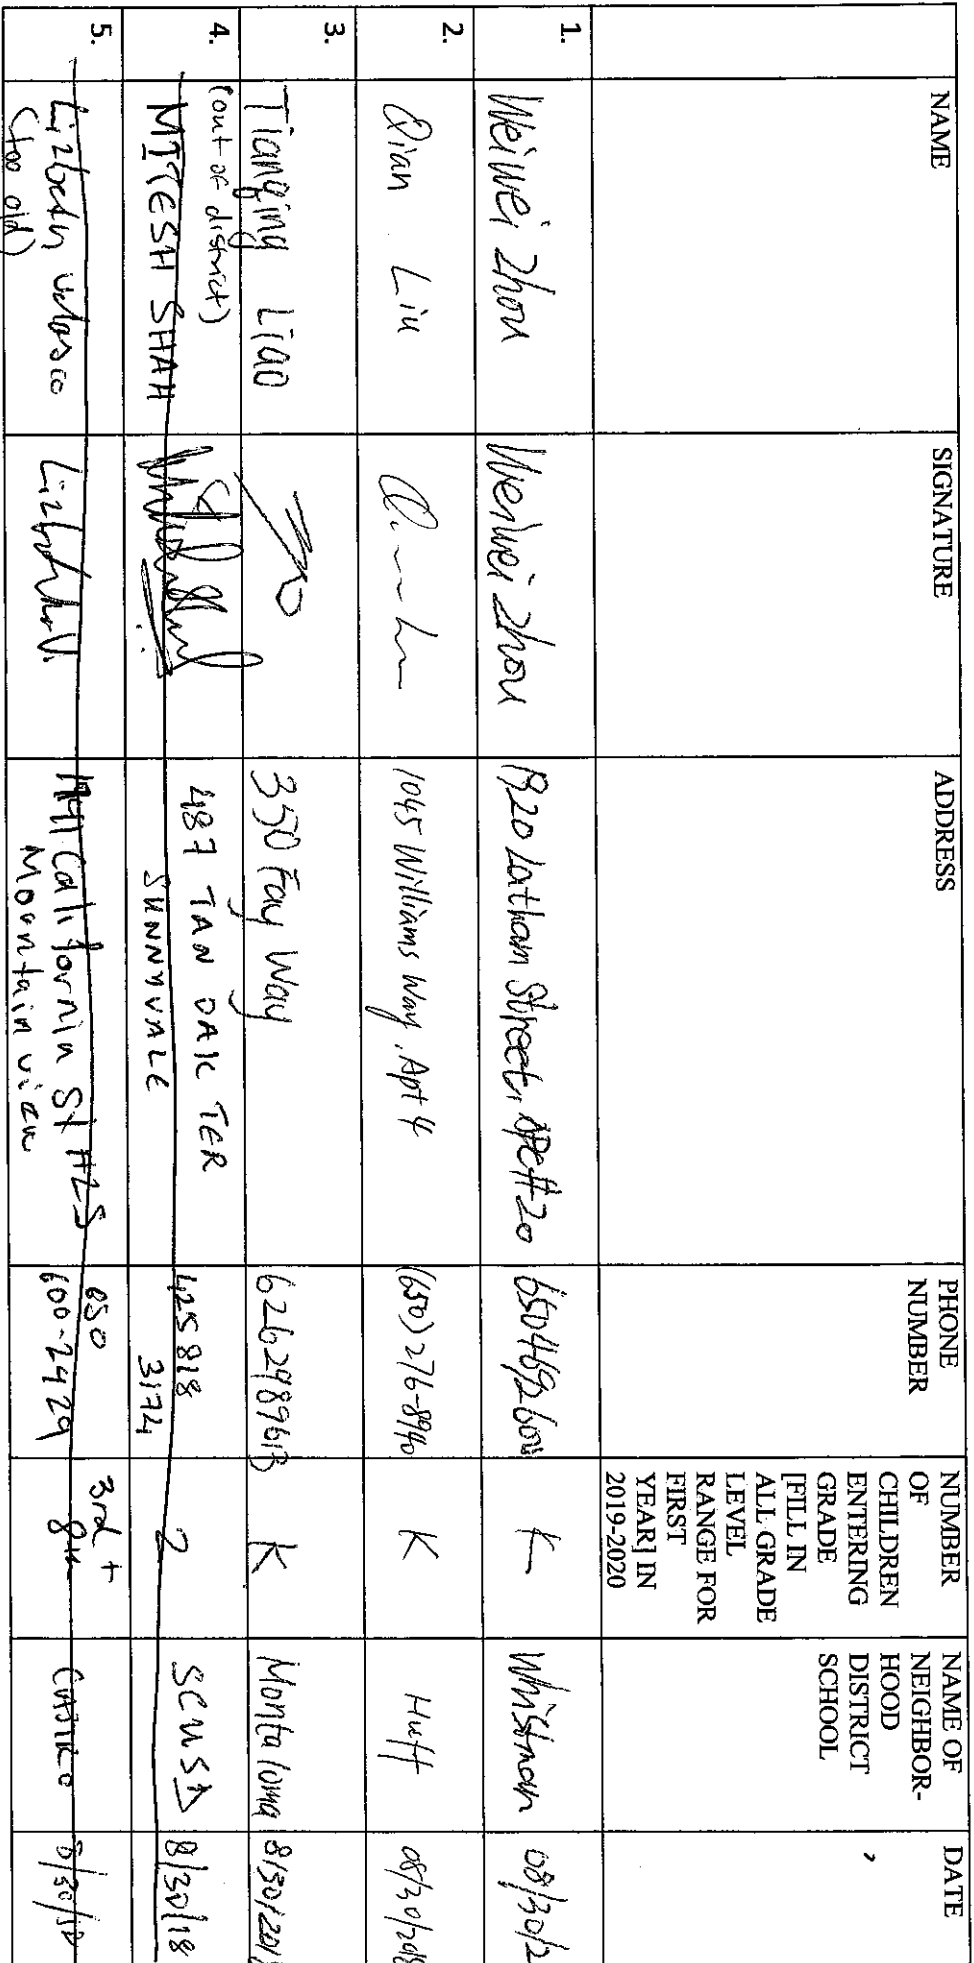 NAME
SIGNATURE
ADDRESS
PHONE
NUMBER
NUMBER
OF
CHILDREN
ENTERING
GRADE
[FILL IN
ALL GRADE
LEVEL
RANGE FOR
FIRST
YEAR] IN
2019-2020
NAME OF
NEIGHBOR-
HOOD
DISTRICT
SCHOOL
DATE
1.
Weiwei Zhou
Weiwei Zhou
1920 Latham Street, apt#20
K
Whisman
08/30/2
2.
Qian Liu
1045 Williams Way, Apt 4
(650) 276-8940
K
Huff
08/30/2018
3.
Tianqing Liao
350 Fay Way
6262989613
K
Monta loma
8/30/201
4.
(out of district)
MITESH SHAH
487 TAN OAK TER
SUNNYVALE
425 818
3174
2
SCUSD
8/30/18
5.
Lizbeth Velasco
(too old)
Lizbeth V.
1941 California St #25
Mountain view
650
600-2429
3rd +
8th
Castro
8/30/18